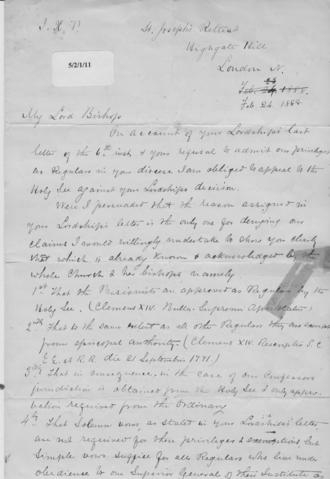 I. X. P.
St. Joseph's Retreat
Highgate Hill
London N.
5/2/1/11
Feb. 24. 1888
My Lord Bishop
On account of your Lordship's last
letter of the 6th inst. & your refusal to admit our privileges
as Regulars in your diocese I am obliged to appeal to the
Holy See against your Lordship's decision.
Were I persuaded that the reason assigned in
your Lordship's letter is the only one for denying our
claims I would willingly undertake to show you clearly
that which is already known & acknowledged by the
whole Church & her bishops namely
1st That the Passionists are approved as Regulars by the
Holy See. (Clemens XIV. Bulla: Supremi Apostolatus)
2nd That to the same extent as all other Regulars they are exempt
from episcopal authority. (Clemens XIV. Rescript. S. C.
E.E. et R.R. die 21 September 1771.)
3rd That in consequence, in the case of our Confessors
jurisdiction is obtained from the Holy See & only appro-
bation required from the Ordinary
4th That Solemn vows, as stated in your Lordship's letter
are not required for these privileges & exemptions but
Simple vows suffice for all Regulars who live under
obedience to our Superior General of their Institute &